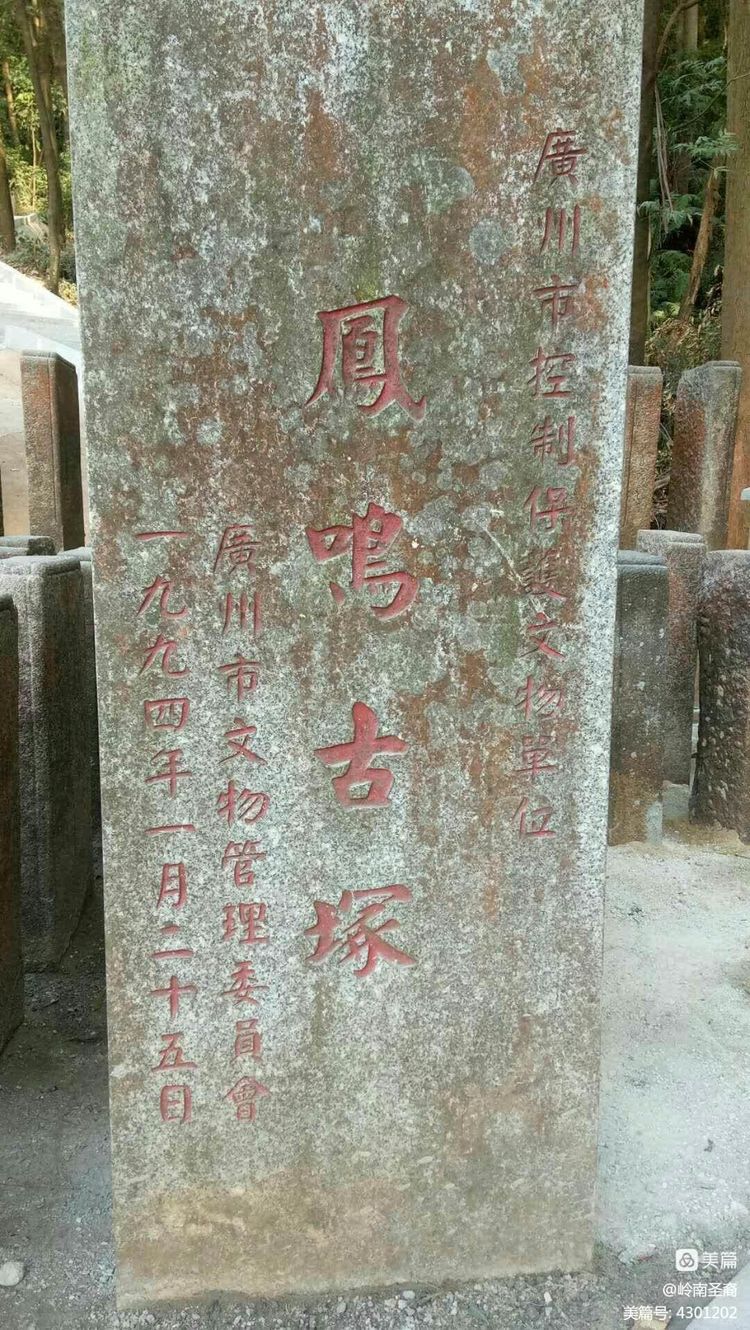 廣州市控制保護文物單位
鳳鳴古塚
廣州市文物管理委員會
一九九四年一月二十五日
美篇
@岭南圣裔
美篇号: 4301202